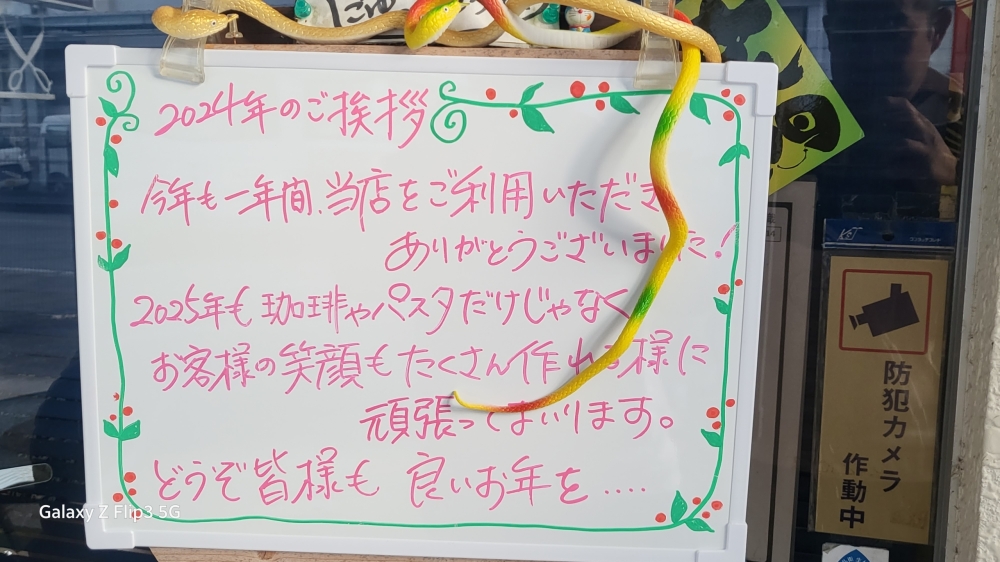 2024年のご挨拶
今年も一年間、当店をご利用いただき
ありがとうございました!
2025年も珈琲やパスタだけじゃなく
お客様の笑顔もたくさん作れる様に
頑張ってまいります。
どうぞ皆様も 良いお年を‥‥
KET
防犯カメラ
作動中
Galaxy Z Flip3 5G